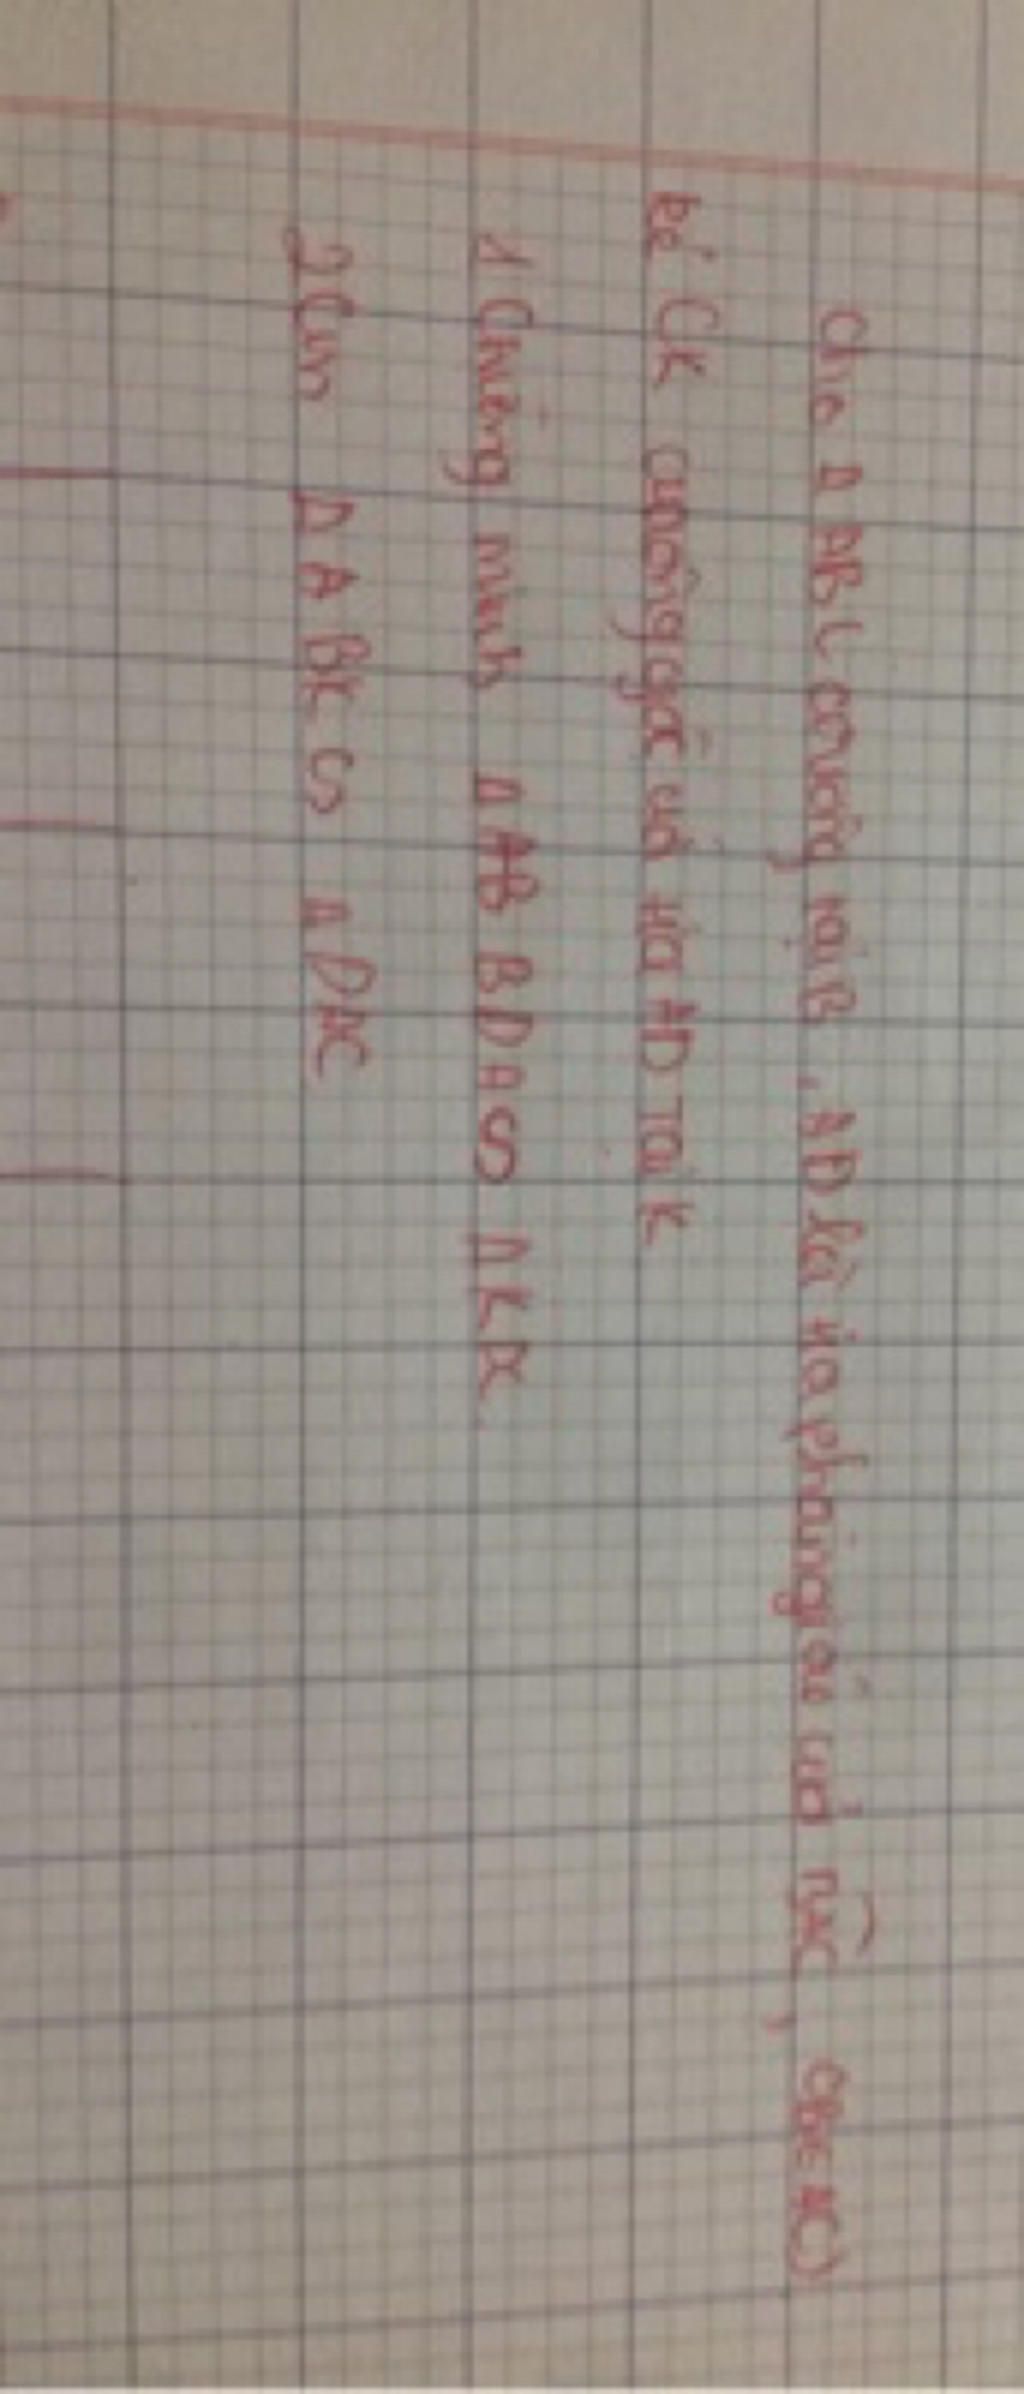 Cho Δ ABC vuông tại B, AD là tia phân giác của BAC, (DϵBC)
kẻ CK vuông góc với tia AD tại K
1 Chứng minh Δ ABD S Δ KDC
2 Cm Δ ABK S Δ ADC